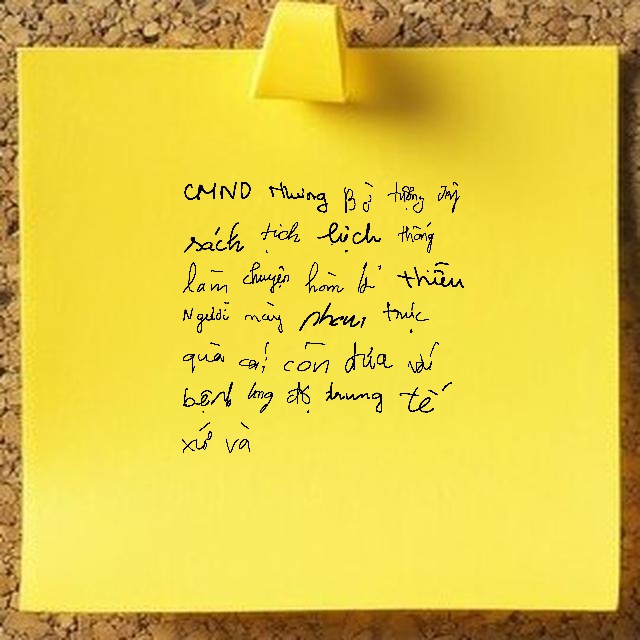 CMND Nhưng Bờ tưởng
sách tịch lịch thống
làm chuyện hòm bị thiên
Người này phạm trúc
quà cá còn đứa với
bệnh long độ trung tế
xứ và